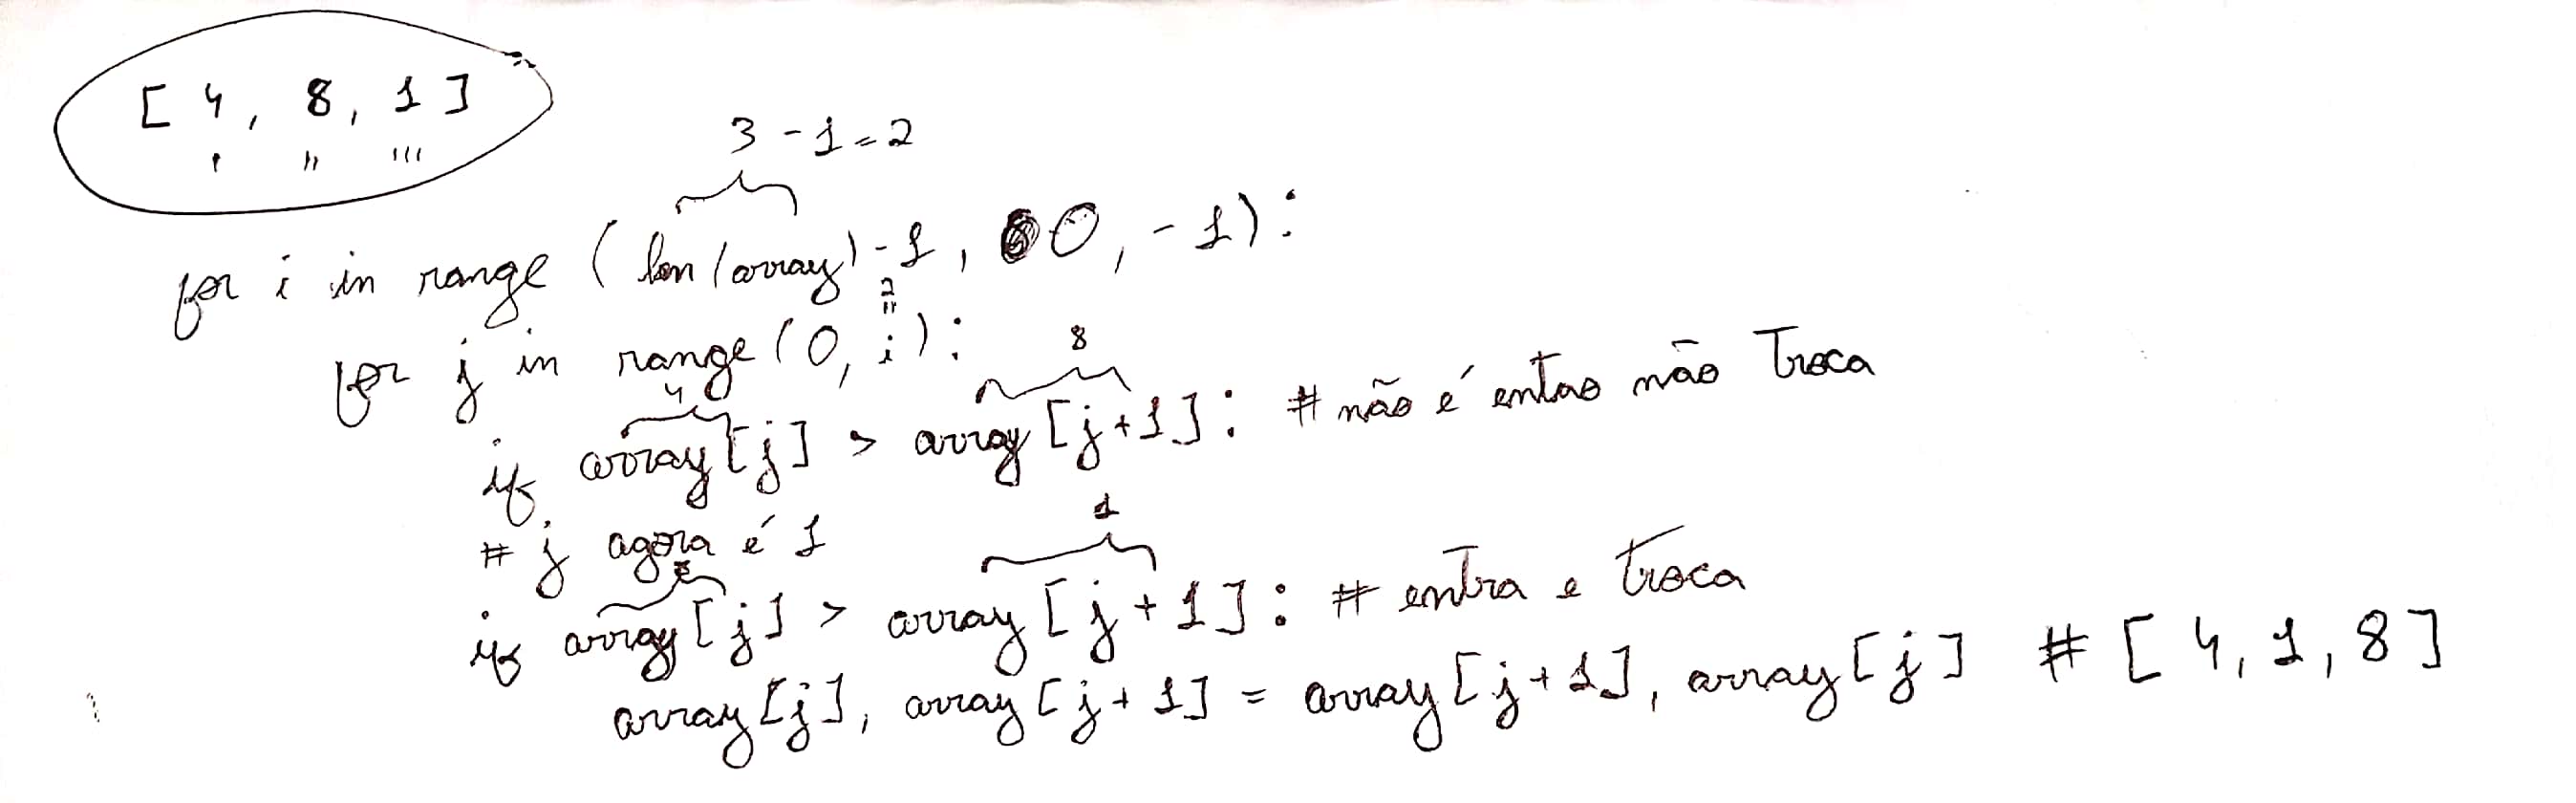 [ 4, 8, 1 ]
' '' '''
3 - 1 = 2
for i in range ( len (array) - 1, 0, -1):
2
"
for j in range (0, i):
4 8
if array [j] > array [j+1]: # não é entao não Troca
# j agora é 1
8 1
if array [j] > array [j+1]: # entra e troca
array [j], array [j+1] = array [j+1], array [j] # [ 4, 1, 8 ]